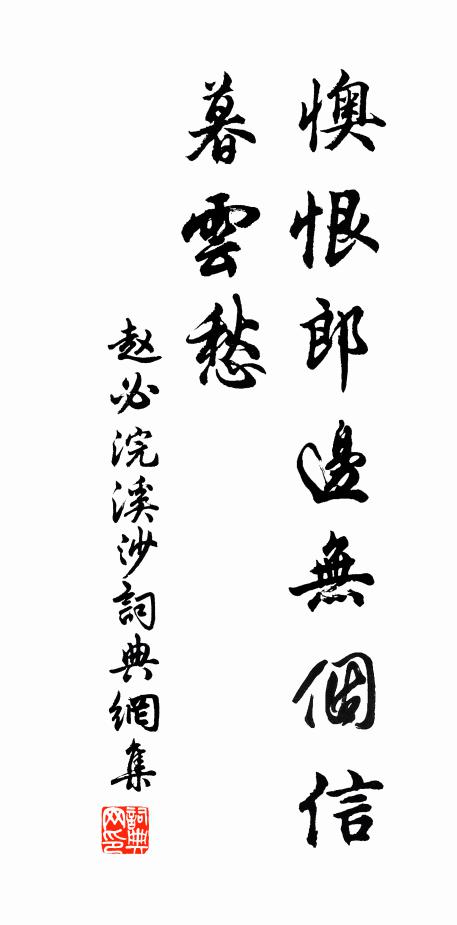 懊恨郎邊無個信
暮雲愁
赵必浣溪沙詞典網集
詞典
网印